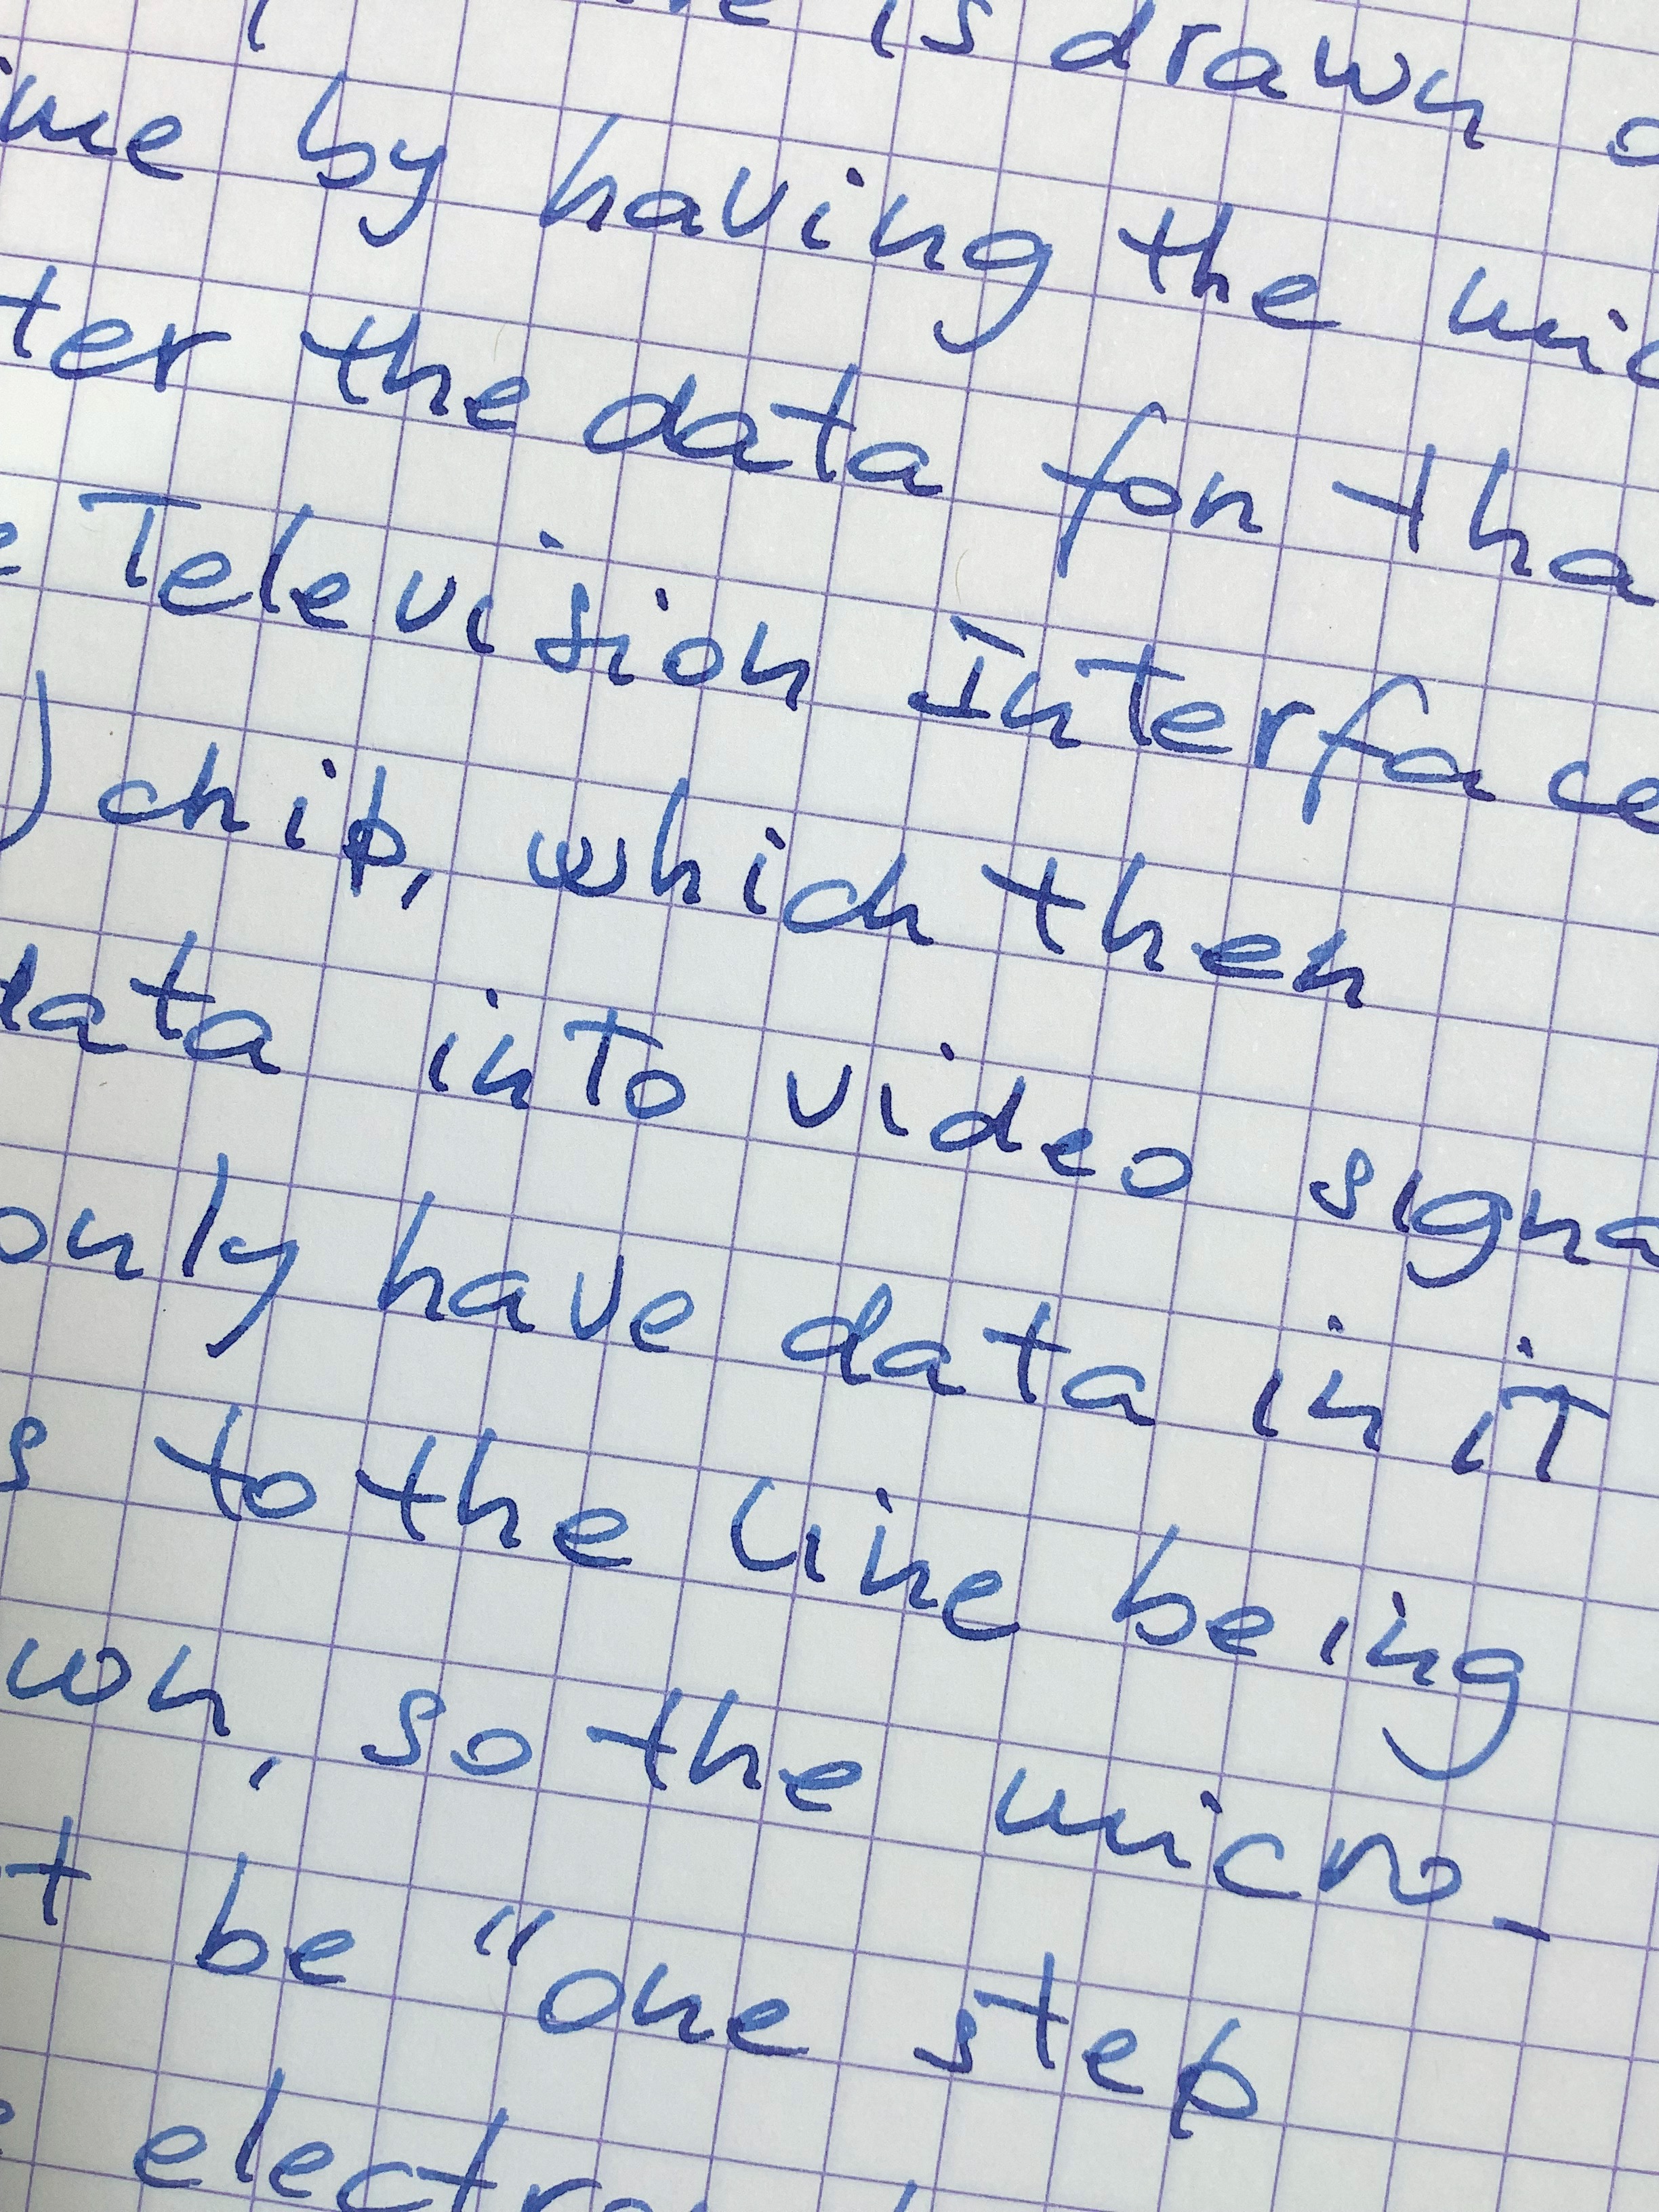 is drawn
by having the
the data for
Television Interface
) chip, which then
data into video
only have data in it
to the line being
, so the micro-
be "one step